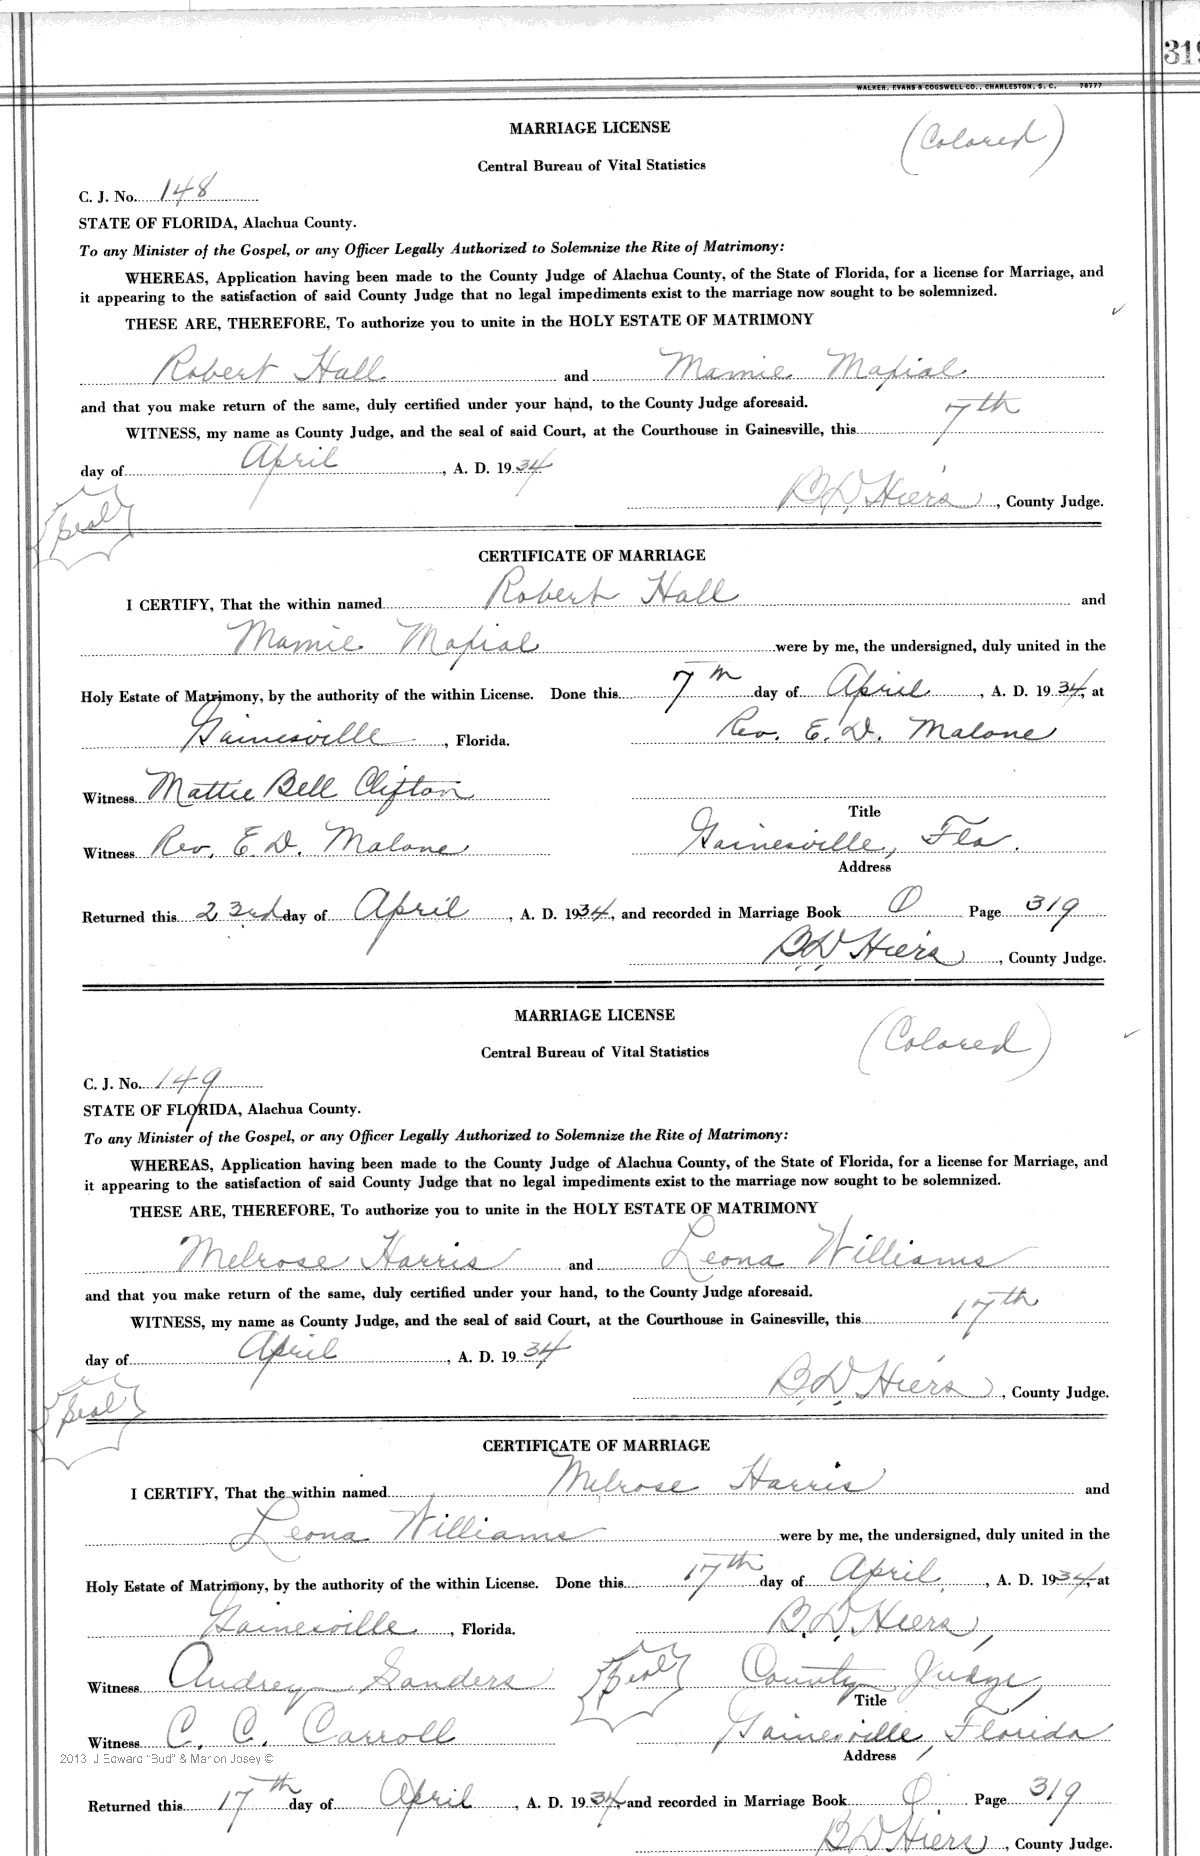 319
WALKER, EVANS & COGSWELL CO., CHARLESTON, S. C. 78777
MARRIAGE LICENSE
(Colored)
Central Bureau of Vital Statistics
C. J. No. 148
STATE OF FLORIDA, Alachua County.
To any Minister of the Gospel, or any Officer Legally Authorized to Solemnize the Rite of Matrimony:
WHEREAS, Application having been made to the County Judge of Alachua County, of the State of Florida, for a license for Marriage, and
it appearing to the satisfaction of said County Judge that no legal impediments exist to the marriage now sought to be solemnized.
THESE ARE, THEREFORE, To authorize you to unite in the HOLY ESTATE OF MATRIMONY
Robert Hall and Mamie
and that you make return of the same, duly certified under your hand, to the County Judge aforesaid.
WITNESS, my name as County Judge, and the seal of said Court, at the Courthouse in Gainesville, this 7th
day of April, A. D. 1934
B. D. Hiers, County Judge.
Seal
CERTIFICATE OF MARRIAGE
I CERTIFY, That the within named Robert Hall and
Mamie were by me, the undersigned, duly united in the
Holy Estate of Matrimony, by the authority of the within License. Done this 7th day of April, A. D. 1934, at
Gainesville, Florida. Rev. E. D. Malone
Witness Mattie Bell Clifton
Title
Witness Rev. E. D. Malone Gainesville, Fla.
Address
Returned this 23rd day of April, A. D. 1934, and recorded in Marriage Book O Page 319
B. D. Hiers, County Judge.
MARRIAGE LICENSE
(Colored)
Central Bureau of Vital Statistics
C. J. No. 149
STATE OF FLORIDA, Alachua County.
To any Minister of the Gospel, or any Officer Legally Authorized to Solemnize the Rite of Matrimony:
WHEREAS, Application having been made to the County Judge of Alachua County, of the State of Florida, for a license for Marriage, and
it appearing to the satisfaction of said County Judge that no legal impediments exist to the marriage now sought to be solemnized.
THESE ARE, THEREFORE, To authorize you to unite in the HOLY ESTATE OF MATRIMONY
Melrose Harris and Leona Williams
and that you make return of the same, duly certified under your hand, to the County Judge aforesaid.
WITNESS, my name as County Judge, and the seal of said Court, at the Courthouse in Gainesville, this 17th
day of April, A. D. 1934
B. D. Hiers, County Judge.
Seal
CERTIFICATE OF MARRIAGE
I CERTIFY, That the within named Melrose Harris and
Leona Williams were by me, the undersigned, duly united in the
Holy Estate of Matrimony, by the authority of the within License. Done this 17th day of April, A. D. 1934, at
Gainesville, Florida. B. D. Hiers,
Witness Audrey Sanders Seal County Judge,
Title
Witness C. C. Carroll Gainesville, Florida
2013 J Edward "Bud" & Marion Josey ©
Address
Returned this 17th day of April, A. D. 1934, and recorded in Marriage Book O Page 319
B D Hiers, County Judge.